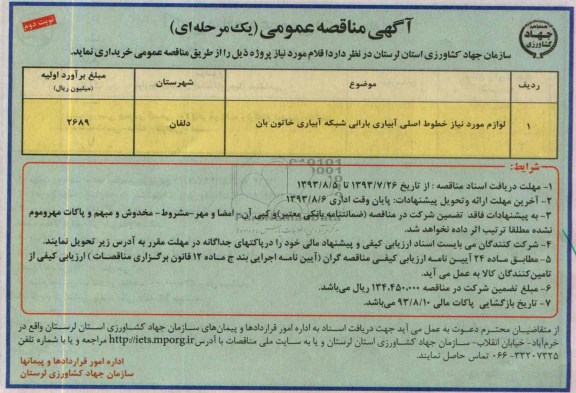 آگهی مناقصه عمومی (یک مرحله ای)
نوبت دوم
جهاد
کشاورزی
سازمان جهاد کشاورزی استان لرستان در نظر دارد اقلام مورد نیاز پروژه ذیل را از طریق مناقصه عمومی خریداری نماید.
ردیف موضوع شهرستان مبلغ برآورد اولیه
(میلیون ریال)
۱ لوازم مورد نیاز خطوط اصلی آبیاری بارانی شبکه آبیاری خاتون بان دلفان ۲۶۸۹
شرایط:
۱- مهلت دریافت اسناد مناقصه : از تاریخ ۱۳۹۳/۷/۲۶ تا ۱۳۹۳/۸/۵
۲- آخرین مهلت ارائه وتحویل پیشنهادات: پایان وقت اداری ۱۳۹۳/۸/۶
۳- به پیشنهادات فاقد تضمین شرکت در مناقصه (ضمانتنامه بانکی معتبر)و کپی آن- امضا و مهر-مشروط- مخدوش و مبهم و پاکات مهروموم
نشده مطلقا ترتیب اثر داده نخواهد شد.
۴- شرکت کنندگان می بایست اسناد ارزیابی کیفی و پیشنهاد مالی خود را درپاکتهای جداگانه در مهلت مقرر به آدرس زیر تحویل نمایند.
۵- مطابق ماده ۲۴ آیین نامه ارزیابی کیفی مناقصه گران (آیین نامه اجرایی بند ج ماده ۱۲ قانون برگزاری مناقصات ) ارزیابی کیفی از
تامین‌کنندگان کالا به عمل می آید.
۶- مبلغ تضمین شرکت در مناقصه ۱۳۴،۴۵۰،۰۰۰ ریال می‌باشد.
۷- تاریخ بازگشایی پاکات مالی ۹۳/۸/۱۰ می‌باشد.
از متقاضیان محترم دعوت به عمل می آید جهت دریافت اسناد به اداره امور قراردادها و پیمان‌های سازمان جهاد کشاورزی استان لرستان واقع در
خرم‌آباد- خیابان انقلاب- سازمان جهاد کشاورزی استان لرستان و یا به سایت ملی مناقصات با آدرس http://iets.mporg.ir مراجعه و یا با شماره تلفن
۳۳۲۰۷۳۲۵-۰۶۶ تماس حاصل نمایند.
اداره امور قراردادها و پیمانها
سازمان جهاد کشاورزی لرستان